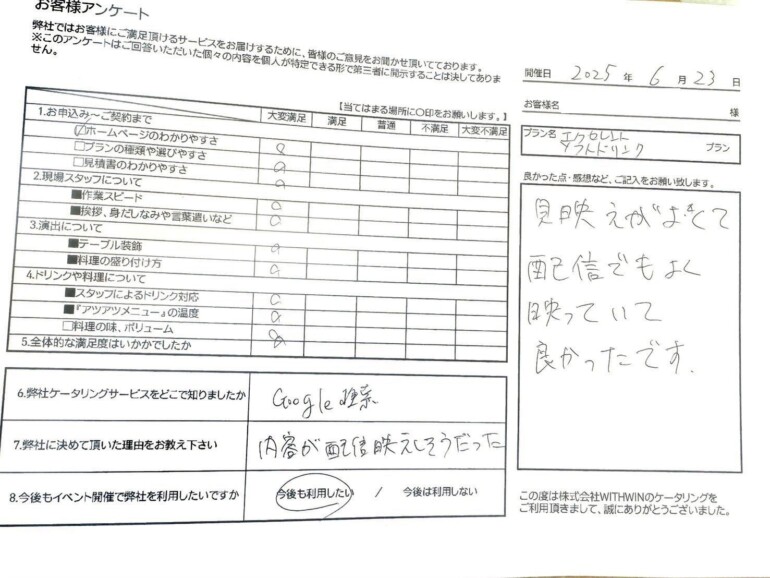 お客様アンケート
弊社ではお客様にご満足頂けるサービスをお届けするために、皆様のご意見をお聞かせ頂いてております。
※このアンケートはご回答いただいた個々の内容を個人が特定できる形で第三者に開示することは決してありま
せん。
【当てはまる場所に〇印をお願いします。】
大変満足 満足 普通 不満足 大変不満足
1.お申込み～ご契約まで
ホームページのわかりやすさ
□プランの種類や選びやすさ
□見積書のわかりやすさ
2.現場スタッフについて
■作業スピード
■挨拶、身だしなみや言葉遣いなど
3.演出について
■テーブル装飾
■料理の盛り付け方
4.ドリンクや料理について
■スタッフによるドリンク対応
■『アツアツメニュー』の温度
□料理の味、ボリューム
5.全体的な満足度はいかかでしたか
6.弊社ケータリングサービスをどこで知りましたか
Google検索
7.弊社に決めて頂いた理由をお教え下さい
内容が配信映えしそうだった
8.今後もイベント開催で弊社を利用したいですか
今後も利用したい / 今後は利用しない
開催日 2025 年 6 月 23 日
お客様名 様
プラン名 エクセレント
ソフトドリンク プラン
良かった点・感想など、ご記入をお願い致します。
見映えがよくて
配信でもよく
映っていて
良かったです.
この度は株式会社WITHWINのケータリングを
ご利用頂きまして、誠にありがとうございました。